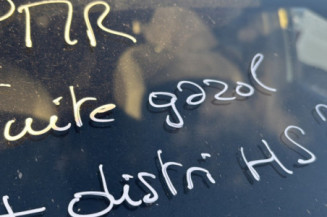 PMR
Fuite gazol
+ distri HS